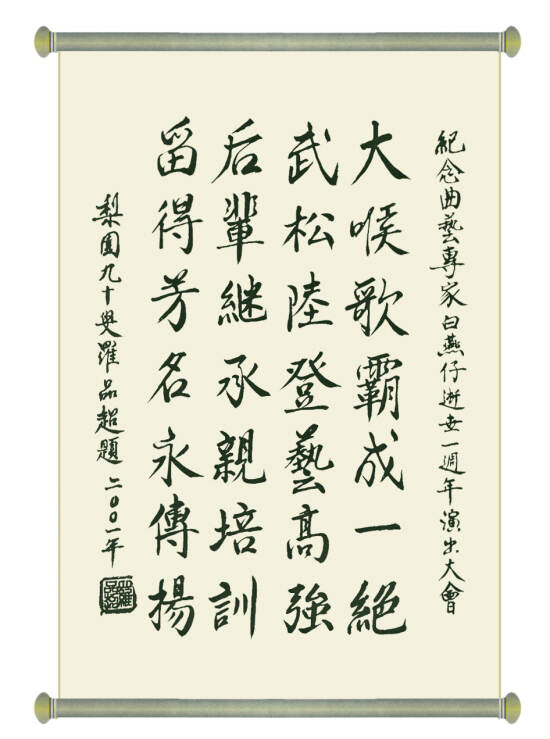 紀念曲藝專家白燕仔逝世一週年演出大會
大喉歌霸成一絕
武松陸登藝高強
后輩継承親培訓
留得芳名永傳揚
梨園九十叟羅品超題 二〇〇一年